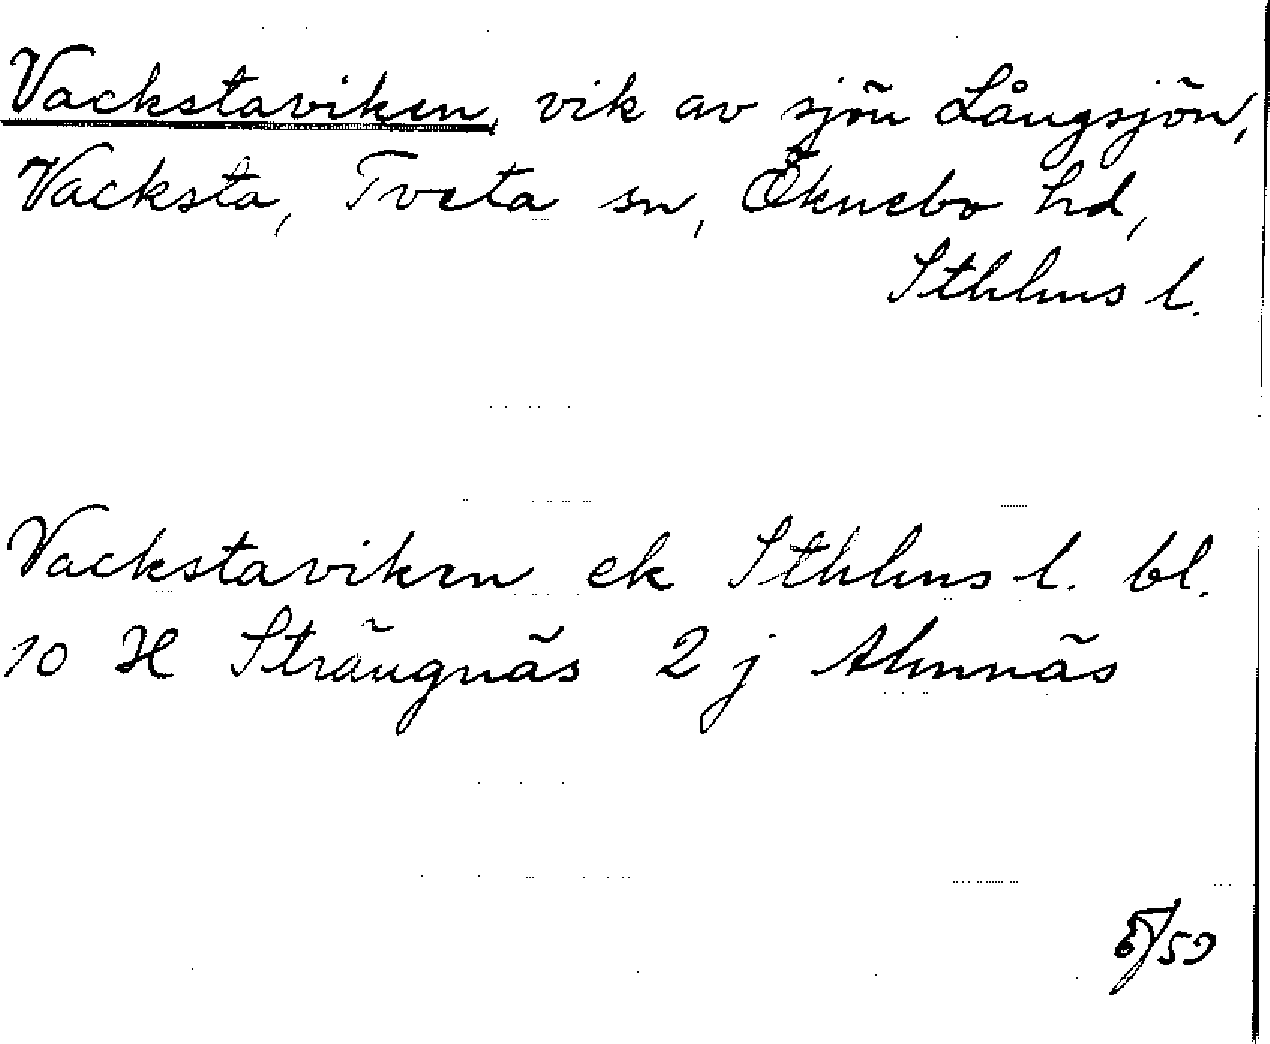 Vackstaviken, vik av sjön Långsjön,
Vacksta, Tveta sn, Öknebo hd,
Sthlms l.
Vackstaviken ek Sthlms l. bl.
10 H Strängnäs 2 j Almnäs